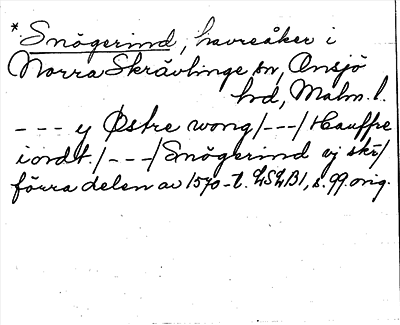 *Snögerind, havreåker i
Norra Skrävlinge sn, Onsjö
hd, Malm. l.
- - - y Østre wong/---/Hauffre
iordt./---/Snögerind vj skr/
förra delen av 1570-t. LSLB1, s. 99. orig.